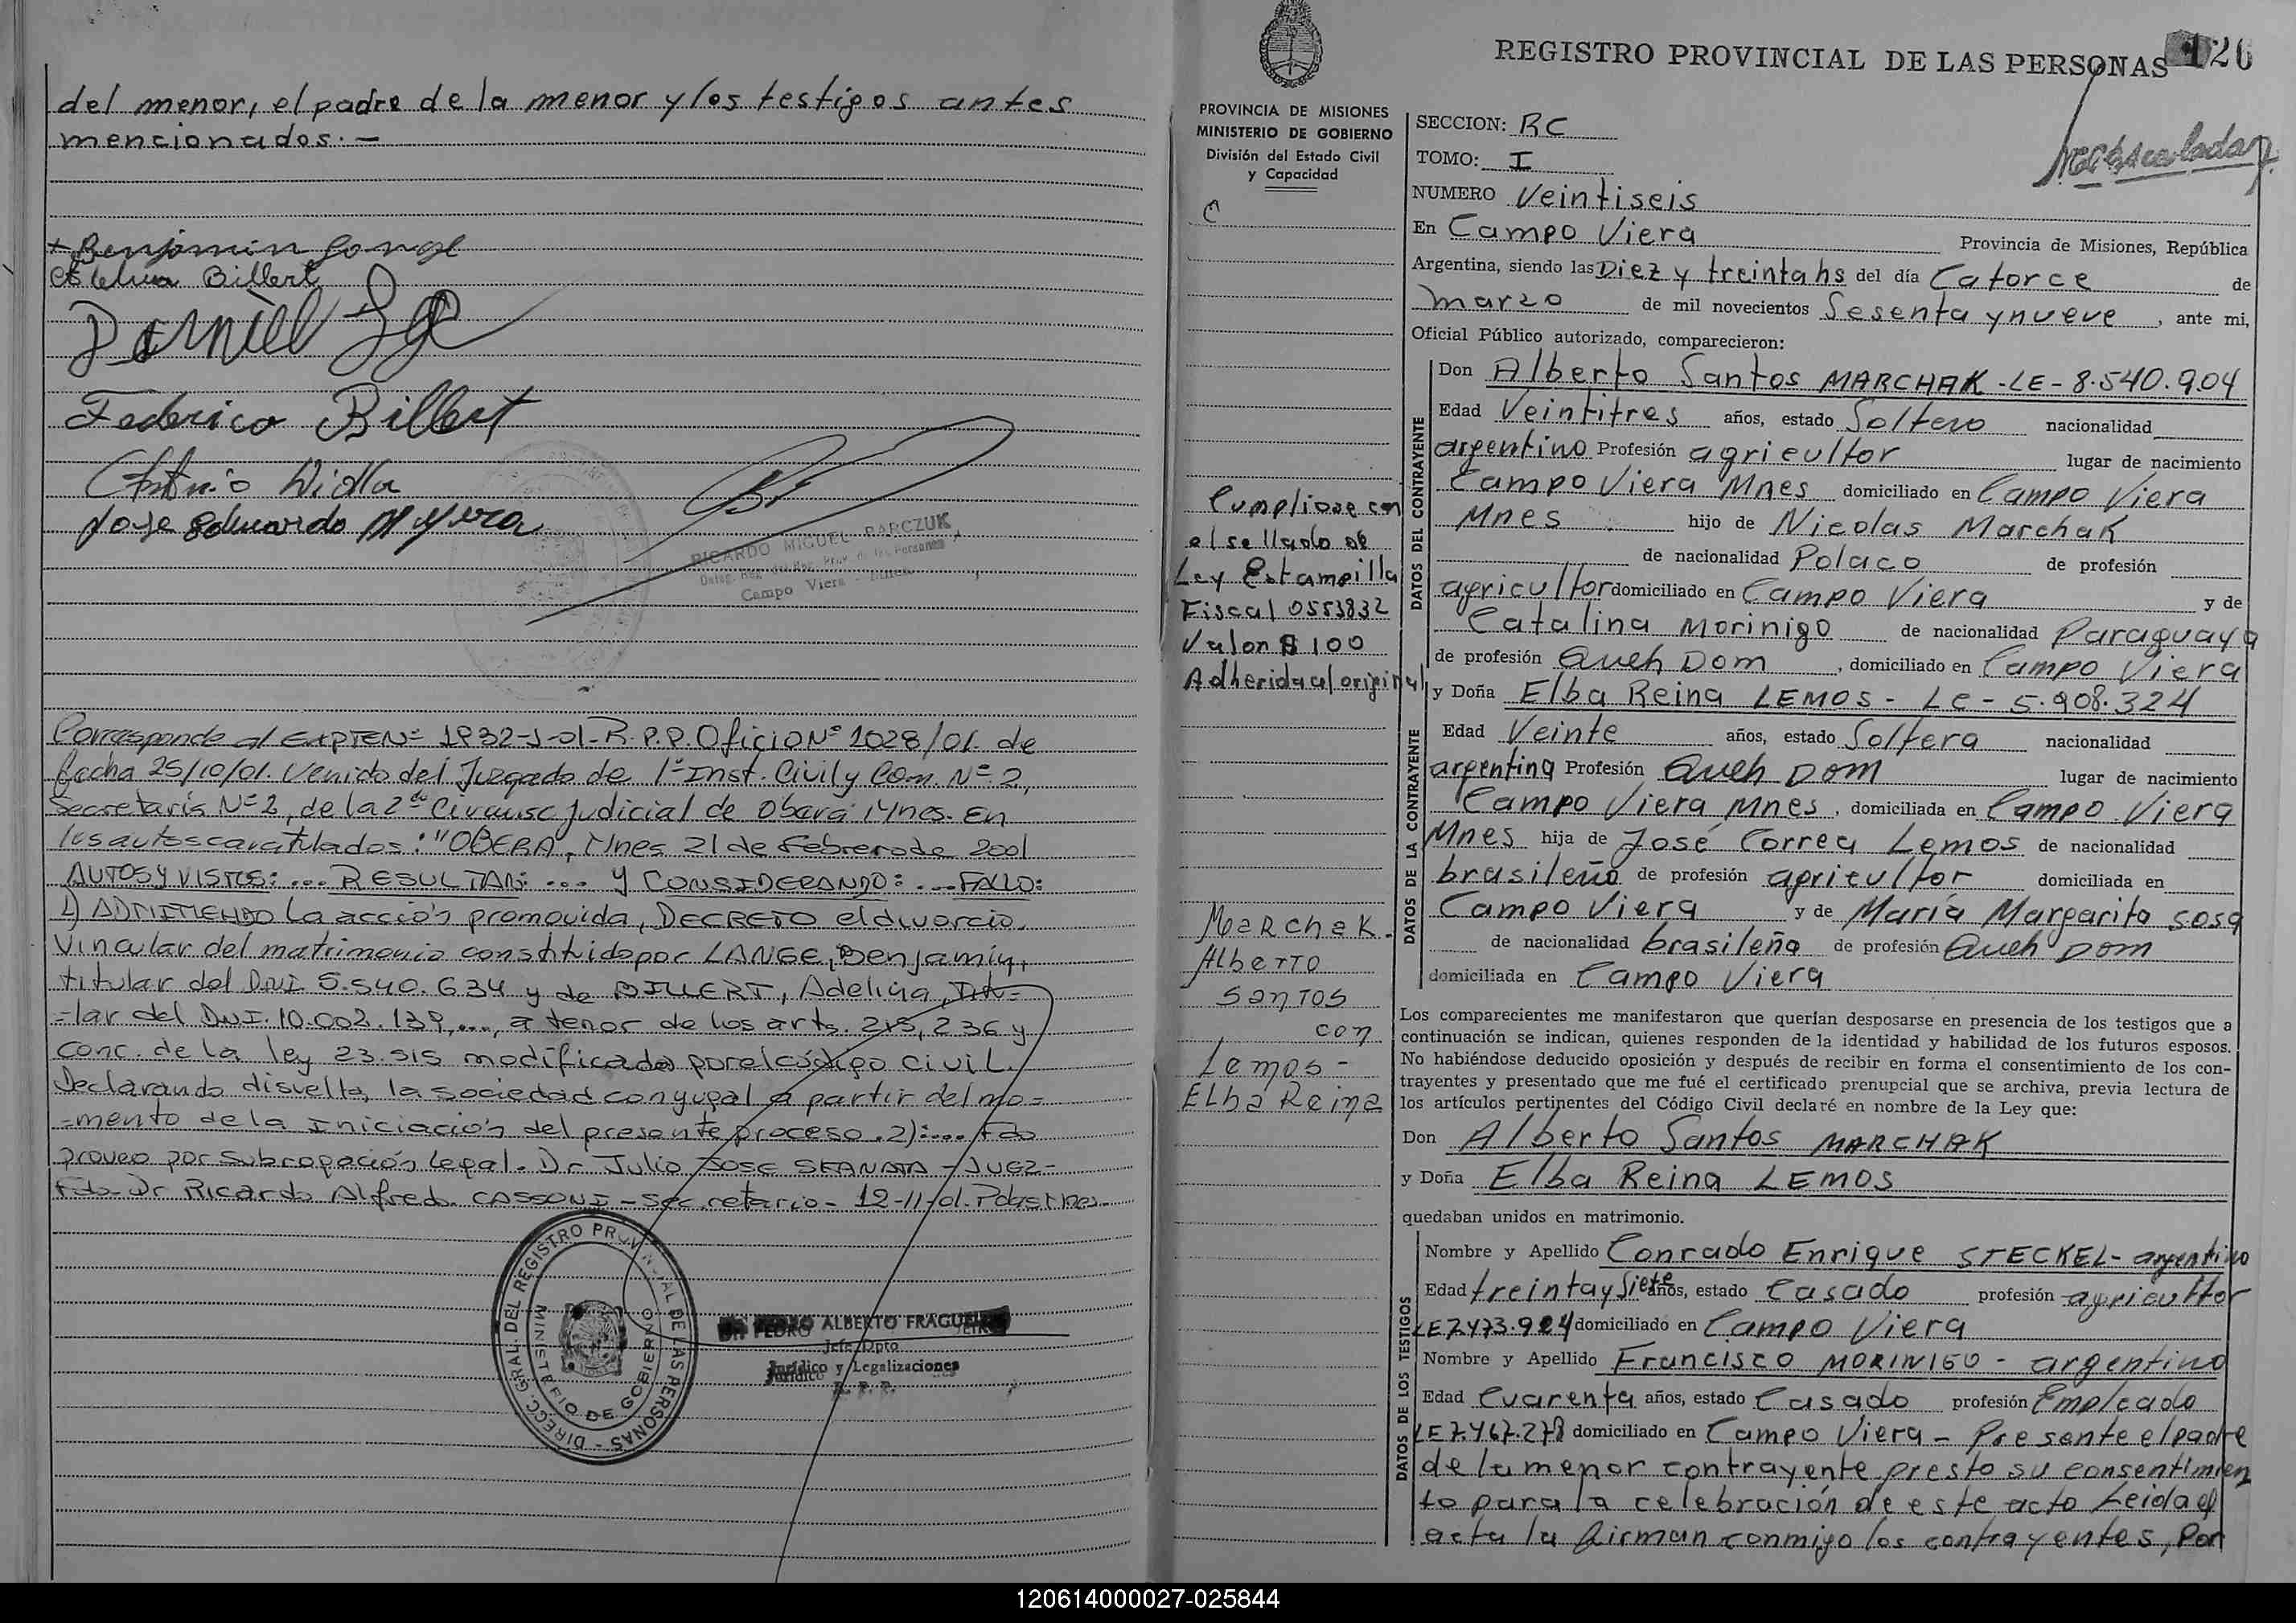 del menor, el padre de la menor y los testigos antes
mencionados.-
Benjamin
Billert
Daniel
Federico Billert
Antonio
Jose Eduardo
RICARDO MIGUEL PARCZUK
Deleg. Reg. Prov. de las Personas
Campo Viera
Corresponde al EXPTE Nº 1832-J-01-R.P.P. Oficio Nº 1028/01. de
fecha 25/10/01. Venido del Juzgado de 1º Inst. Civil y Com. Nº 2,
Secretaría Nº 2, de la 2da Circunsc Judicial de Oberá Mnes. En
los autos caratulados: "OBERA, Mnes 21 de Febrero de 2001
AUTOS Y VISTOS: ... RESULTAN: ... Y CONSIDERANDO: ... FALLO:
1) ADMITIENDO la acción promovida, DECRETO el divorcio
Vincular del matrimonio constituido por LANGE, Benjamín,
titular del DNI 5.540.634 y de BILLERT, Adelina, Titu=
=lar del DNI. 10.002.139, ..., a tenor de los arts. 215, 236 y
conc. de la ley 23.515 modificada por el código CIVIL.
Declarando disuelta, la sociedad conyugal a partir del mo=
=mento de la Iniciación del presente proceso. 2): ... Fdo
proveo por subrogación legal. Dr Julio Jose - JUEZ-
Fdo- Dr Ricardo Alfredo CASSONI - Secretario - 12-11-01. Pdas Mnes.
DIRECC. GRAL DEL REGISTRO PROVINCIAL DE LAS PERSONAS
MINISTERIO DE GOBIERNO
PEDRO ALBERTO
Jefe Dpto
Jurídico y Legalizaciones
R. P. P.
REGISTRO PROVINCIAL DE LAS PERSONAS 126
PROVINCIA DE MISIONES
MINISTERIO DE GOBIERNO
División del Estado Civil
y Capacidad
C
Cumpliose con
el sellado de
Ley Estampilla
Fiscal 0553832
Valor $ 100
Adherida al original
Marchak.
Alberto
Santos
con
Lemos -
Elba Reina
SECCION: RC
TOMO: I
NUMERO Veintiseis
En Campo Viera Provincia de Misiones, República
Argentina, siendo las Diez y treinta hs del día Catorce de
marzo de mil novecientos Sesenta y nueve, ante mi,
Oficial Público autorizado, comparecieron:
DATOS DEL CONTRAYENTE
Don Alberto Santos MARCHAK - LE - 8.540.904
Edad Veintitres años, estado Soltero nacionalidad
argentino Profesión agricultor lugar de nacimiento
Campo Viera Mnes domiciliado en Campo Viera
Mnes hijo de Nicolas Marchak
de nacionalidad Polaco de profesión
agricultor domiciliado en Campo Viera y de
Catalina Morinigo de nacionalidad Paraguaya
de profesión Queh Dom, domiciliado en Campo Viera
DATOS DE LA CONTRAYENTE
y Doña Elba Reina LEMOS - LC - 5.908.324
Edad Veinte años, estado Soltera nacionalidad
argentina Profesión Queh Dom lugar de nacimiento
Campo Viera Mnes, domiciliada en Campo Viera
Mnes hija de José Correa Lemos de nacionalidad
brasileño de profesión agricultor domiciliada en
Campo Viera y de María Margarita Sosa
de nacionalidad brasileña de profesión Queh Dom
domiciliada en Campo Viera
Los comparecientes me manifestaron que querían desposarse en presencia de los testigos que a
continuación se indican, quienes responden de la identidad y habilidad de los futuros esposos.
No habiéndose deducido oposición y después de recibir en forma el consentimiento de los con-
trayentes y presentado que me fué el certificado prenupcial que se archiva, previa lectura de
los artículos pertinentes del Código Civil declaré en nombre de la Ley que:
Don Alberto Santos MARCHAK
y Doña Elba Reina LEMOS
quedaban unidos en matrimonio.
DATOS DE LOS TESTIGOS
Nombre y Apellido Conrado Enrique STECKEL - argentino
Edad treinta y Siete años, estado Casado profesión agricultor
LE 7.473.924 domiciliado en Campo Viera
Nombre y Apellido Francisco MORINIGO - argentino
Edad Cuarenta años, estado Casado profesión Empleado
LE 7.467.278 domiciliado en Campo Viera - Presente el padre
de la menor contrayente presto su consentimien
to para la celebración de este acto Leida el
acta la firman conmigo los contrayentes, por
120614000027-025844